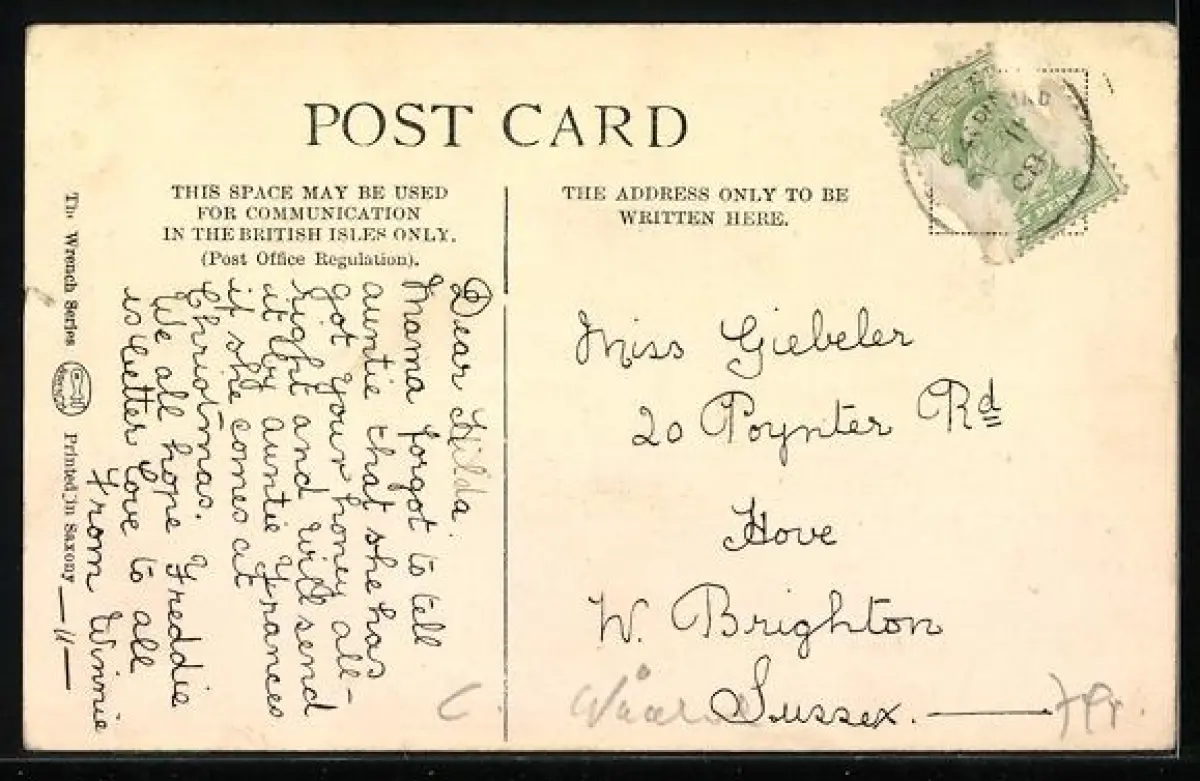 POST CARD
THIS SPACE MAY BE USED
FOR COMMUNICATION
IN THE BRITISH ISLES ONLY.
(Post Office Regulation).
THE ADDRESS ONLY TO BE
WRITTEN HERE.
Dear Hilda.
Mama forgot to tell
auntie that she has
got your honey all-
right and will send
it by auntie Frances
if she comes at
Christmas.
We all hope Freddie
is better love to all
From Winnie
Miss Giebeler
20 Poynter Rd
Hove
W. Brighton
Sussex.
The Wrench Series
Printed in Saxony